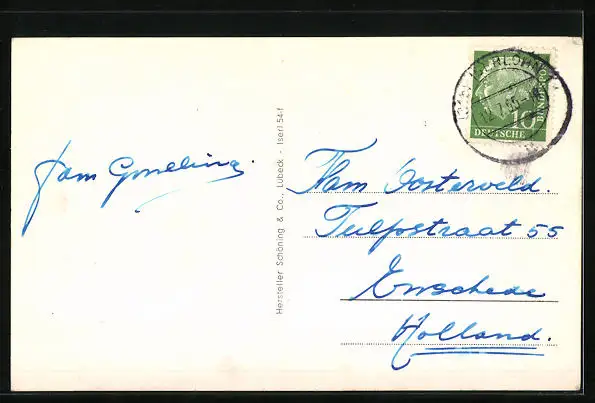 Fam Gmelling.
Hersteller Schöning & Co., Lübeck - Iserl 54f
10
DEUTSCHE
BUNDESPOST
Fam Oosterveld.
Tulpstraat 55
Enschede
Holland.